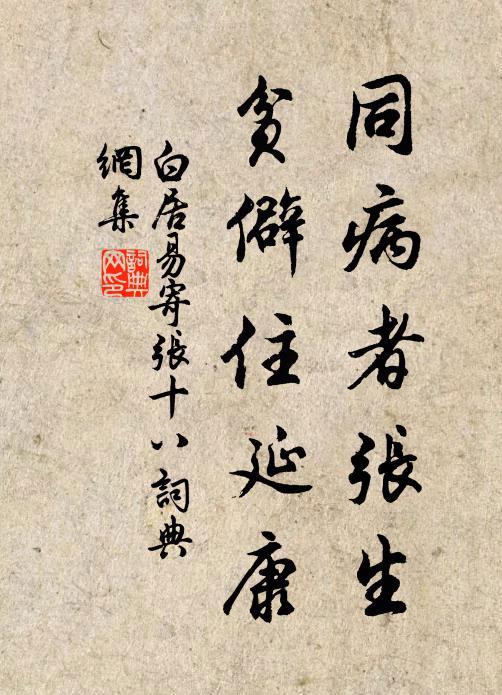 同病者張生
貧僻住延康
白居易寄張十八詞典
網集
詞典
网印